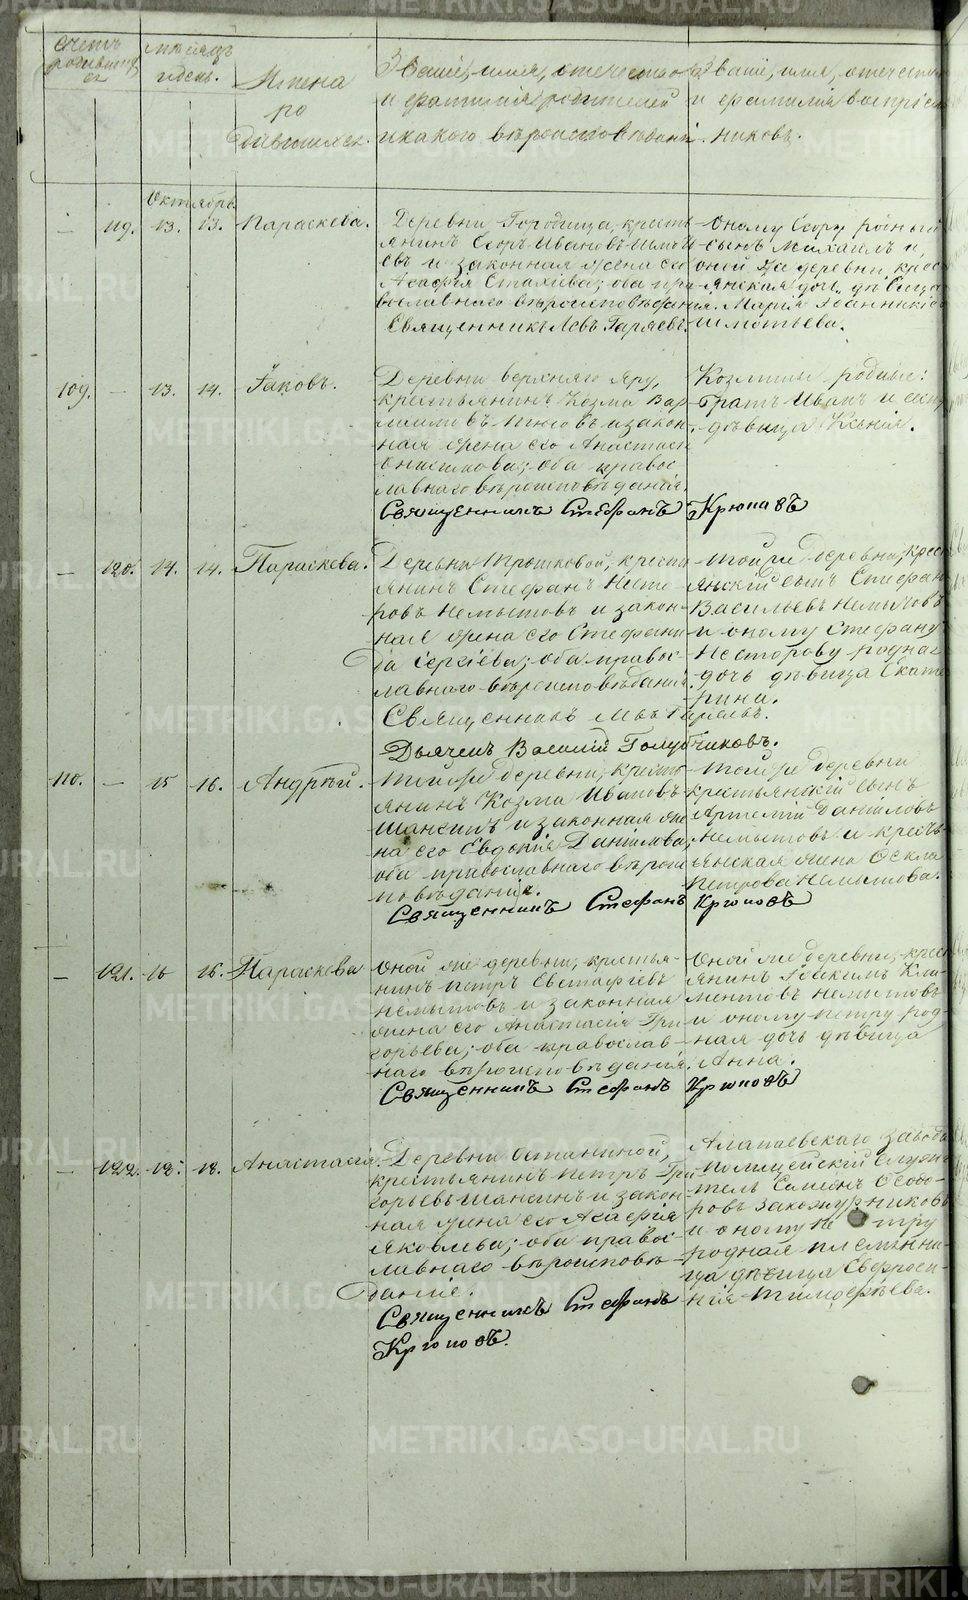 Счетъ родившихся
Мѣсяцъ и день.
Имена родившихся.
Званіе, имя, отечество и фамилія родителей и какого вѣроисповѣданія.
Званіе, имя, отечество и фамилія воспріемниковъ.
Октябрь
— 119. 13. 13. Параскева.
Деревни Городища, кресть
янинъ Егоръ Ивановъ
и законная жена его
Агафія; оба пра
вославнаго вѣроисповѣданія.
Священникъ Левъ Гаряевъ.
Оному Егору родный
сынъ Михаилъ и
оной же деревни крес
янская дочь дѣвица
Марія
109. — 13. 14. Іаковъ.
Деревни верхняго Яру,
крестьянинъ Козма Вар
и закон
ная жена его Анастасія
Онисимова; оба правос
лавнаго вѣроисповѣданія.
Священникъ Стефанъ Крюковъ
Козмины родные:
братъ Иванъ и сест
дѣвица Ксенія.
— 120. 14. 14. Параскева.
Деревни Трошковой, кресть
янинъ Стефанъ Несте
ровъ Немытовъ и закон
ная жена его Стефани
да Сергіева; оба правос
лавнаго вѣроисповѣданія.
Священникъ Левъ Гаряевъ.
Дьячекъ Василій Голубчиковъ.
Той же деревни, крест
янскій сынъ Стефан
Васильевъ Немытовъ
и оному Стефану
Несторову родная
дочь дѣвица Екате
рина.
110. — 15 16. Андрей.
Той же деревни, кресть
янинъ Козма Ивановъ
Шансинъ и законная же
на его Евдокія Данилова;
оба православнаго вѣрои
повѣданія.
Священникъ Стефанъ Крюковъ
Той же деревни
крестьянскій сынъ
Артемій Даніиловъ
Немытовъ и кресть
янская жена Фекла
Петрова Немытова.
— 121. 16 16. Параскева
Оной же деревни, крестья-
нинъ Петръ Евстафіевъ
Немытовъ и законная
жена его Анастасія Гри
горьева; оба православ-
наго вѣроисповѣданія.
Священникъ Стефанъ Крюковъ
Оной же деревни, крест
янинъ Іоакимъ Кли-
ментовъ Немытовъ
и оному Петру род-
ная дочь дѣвица
Анна.
— 122. 18. 18. Анастасія.
Деревни Останиной,
крестьянинъ Петръ Гри
горьевъ Шансинъ и закон
ная жена его Агафія
Яковлева; оба правос-
лавнаго вѣроисповѣ
данія.
Священникъ Стефанъ
Крюковъ.
Алапаевскаго завода
полицейскій служи
тель Симеонъ Ѳеодо
ровъ Закожурниковъ
и оному Петру
родная племянни
ца дѣвица Евфроси
нія Тимофеева.
METRIKI.GASO-URAL.RU